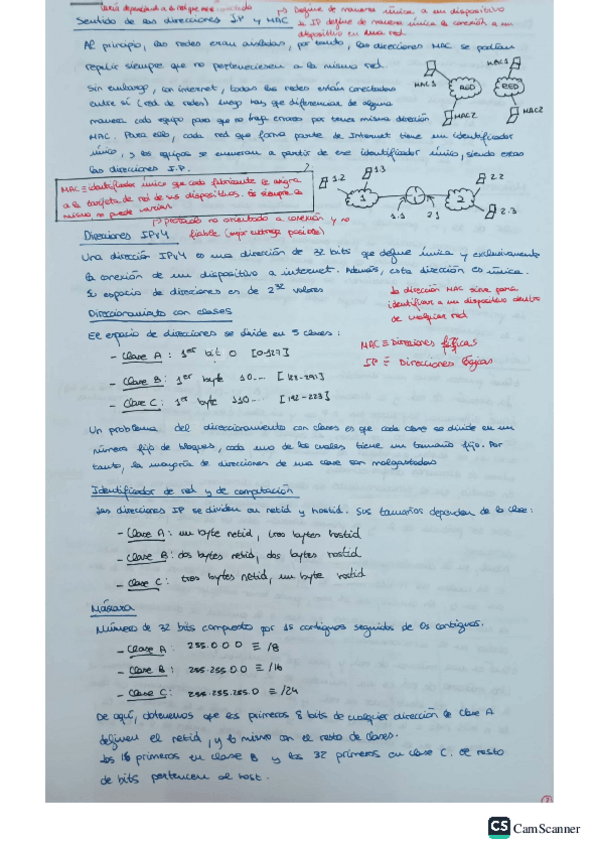 (*) Define de manera única a un dispositivo
Sentido de las direcciones IP y MAC
IP define de manera única la conexión a un
dispositivo en una red.
Al principio, las redes eran aisladas, por tanto, las direcciones MAC se podían
repetir siempre que no perteneciesen a la misma red.
Sin embargo, con internet, todas las redes están conectadas
entre sí (red de redes) luego hay que diferenciar de alguna
manera cada equipo para que no haya errores por tener misma dirección
MAC. Para ello, cada red que forma parte de Internet tiene un identificador
único, y los equipos se enumeran a partir de ese identificador único, siendo estas
las direcciones I.P.
MAC1
RED
MAC2
MAC1
RED
MAC2
MAC ≡ identificador único que cada fabricante le asigna
a la tarjeta de red de sus dispositivos. Es siempre la
misma no puede variar.
1.2
1.3
1
1.1
2.1
2
2.2
2.3
(*) protocolo no orientado a conexión y no
fiable (mejor entrega posible)
Direcciones IPv4
Una dirección IPv4 es una dirección de 32 bits que define única y exclusivamente
la conexión de un dispositivo a internet. Además, esta dirección es única.
Su espacio de direcciones es de 2^32 valores
La dirección MAC sirve para
identificar a un dispositivo dentro
de cualquier red
Direccionamiento con clases
El espacio de direcciones se divide en 5 clases:
MAC ≡ Direcciones físicas
IP ≡ Direcciones lógicas
- Clase A: 1er bit 0 [0-127]
- Clase B: 1er byte 10... [128-191]
- Clase C: 1er byte 110... [192-223]
Un problema del direccionamiento con clases es que cada clase se divide en un
número fijo de bloques, cada uno de los cuales tiene un tamaño fijo. Por
tanto, la mayoría de direcciones de una clase son malgastadas
Identificador de red y de computación
Las direcciones IP se dividen en netid y hostid. Sus tamaños dependen de la clase:
- Clase A: un byte netid, tres bytes hostid
- Clase B: dos bytes netid, dos bytes hostid
- Clase C: tres bytes netid, un byte hostid
Máscara
Número de 32 bits compuesto por 1s contiguos seguidos de 0s contiguos.
- Clase A: 255.0.0.0 ≡ /8
- Clase B: 255.255.0.0 ≡ /16
- Clase C: 255.255.255.0 ≡ /24
De aquí, obtenemos que los primeros 8 bits de cualquier dirección de Clase A
definen el netid, y lo mismo con el resto de clases.
Los 16 primeros en clase B y los 32 primeros en clase C. El resto
de bits pertenecen al host.
CS CamScanner